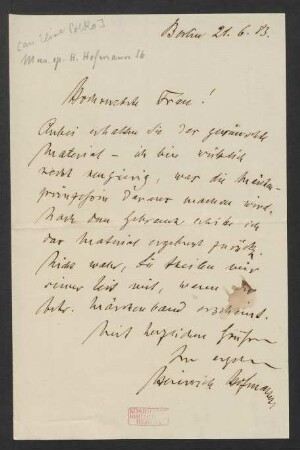 [an Elise Polko]
Mus. ep. H. Hofmann 16
Berlin 21. 6. 83.
Hochverehrte Frau!
Anbei erhalten Sie das gewünschte
Material – ich bin wirklich
recht neugierig, was die Märchen-
prinzessin daraus machen wird.
Nach dem Gebrauch erbitte ich
das Material ergebenst zurück.
Nicht wahr, Sie theilen mir
seiner Zeit mit, wenn der
betr. Märchenband erscheint.
Mit herzlichen Grüßen
Ihr ergeb.
Heinrich Hofmann